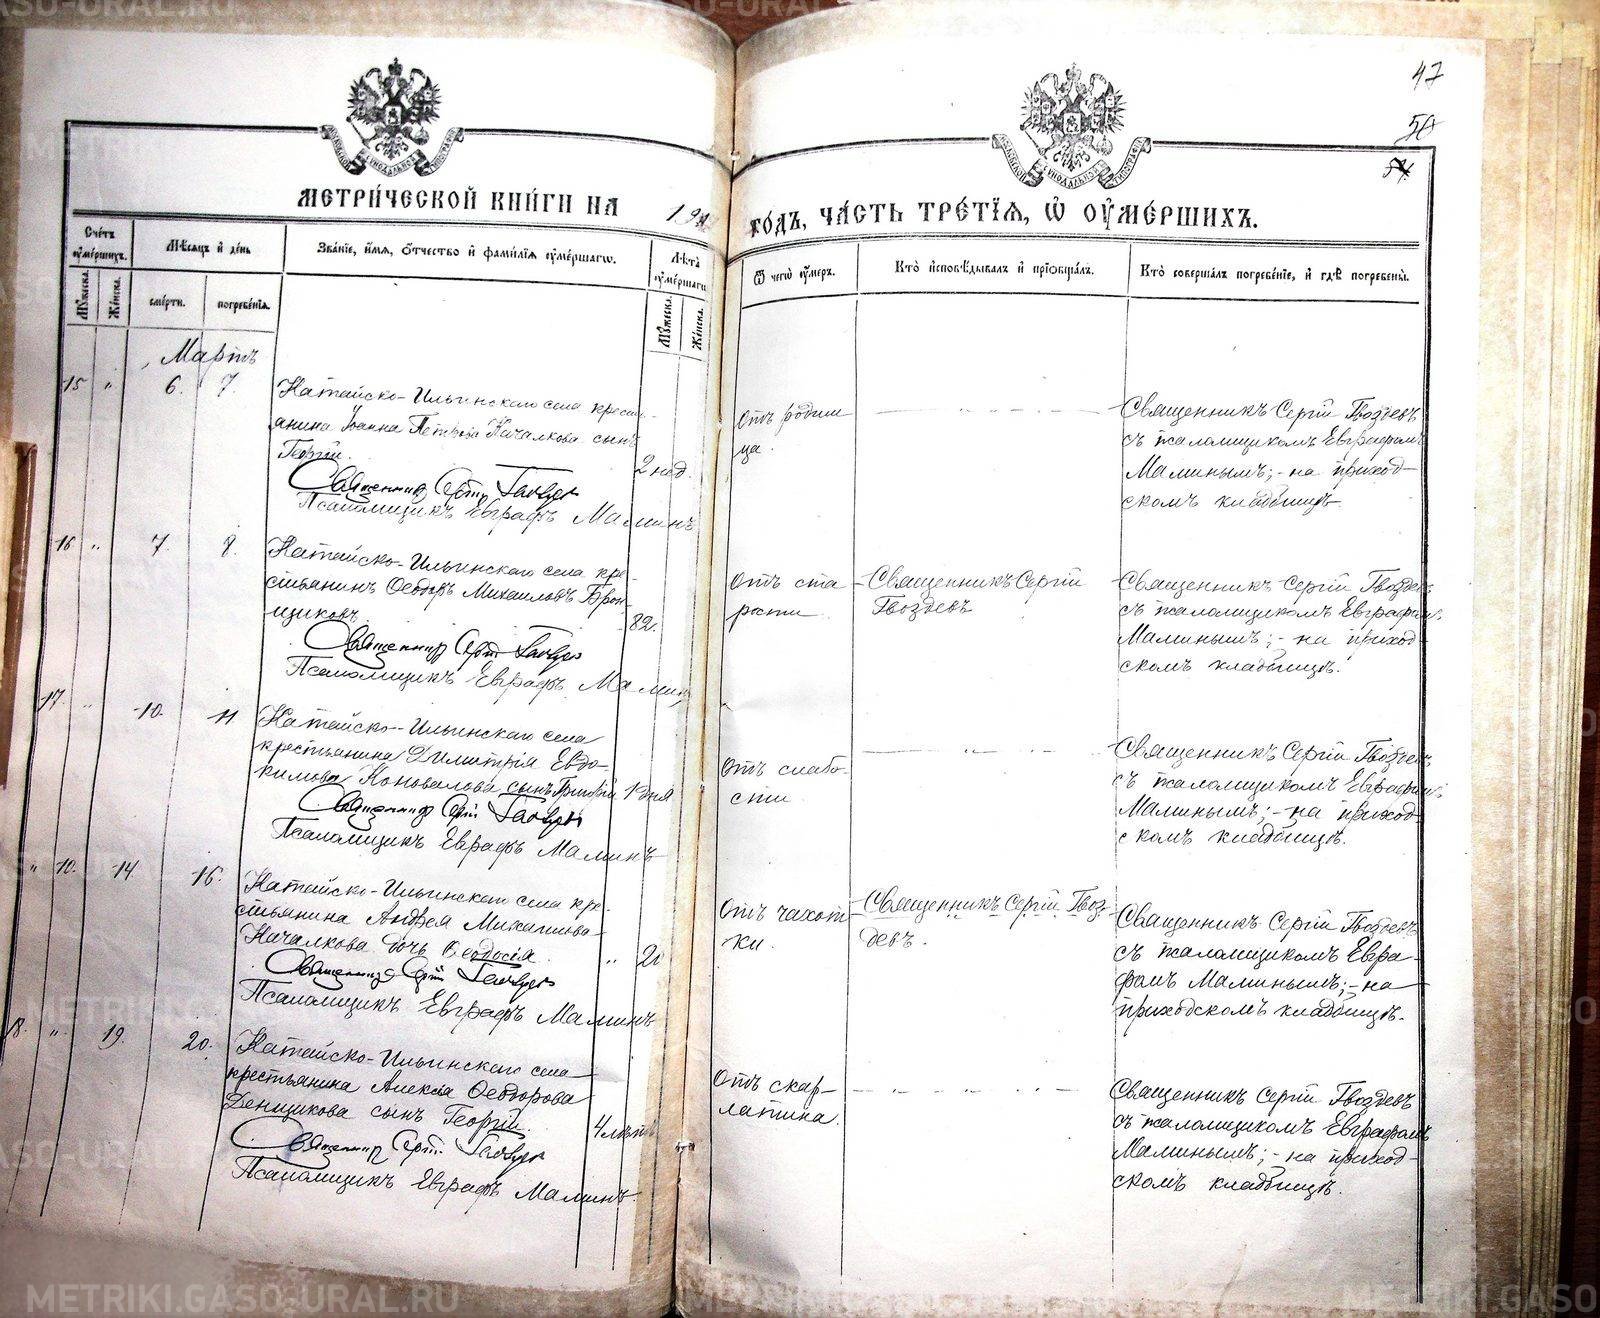 47
50
МЕТРИ́ЧЕСКОЙ КНИ́ГИ НА
ГО́ДЪ, ЧА́СТЬ ТРЕ́ТІѦ, Ѽ ОУ҆МЕ́РШИХЪ.
Сче́тъ оу҆ме́ршихъ.
Мꙋ́жеска.
Же́нска.
Мѣ́сяцъ и҆ де́нь
сме́рти.
погребе́нїѧ.
Зва́нїе, и҆́мѧ, ѻ҆́тчество и҆ фами́лїѧ оу҆ме́ршагѡ.
Лѣ́та оу҆ме́ршагѡ
Мꙋ́жеска.
Же́нска.
Ѿ чегѡ̀ оу҆́меръ.
Кто̀ и҆сповѣ́дывалъ и҆ прїѡбща́лъ.
Кто̀ соверша́лъ погребе́нїе, и҆ гдѣ̀ погребены̀.
Мартъ
15 " 6. 7.
Катайско-Ильинскаго села кресть-
янина Іоанна Петрова Качалкова сынъ
Георгій.
2 нед.
Священникъ Сергій Гвоздевъ
Псаломщикъ Евграфъ Маминъ
Отъ родим
ца.
Священникъ Сергій Гвоздевъ
съ псаломщикомъ Евграфомъ
Маминымъ; - на приход-
скомъ кладбищѣ.
16 " 7. 8.
Катайско-Ильинскаго села кре-
стьянинъ Ѳеодоръ Михаиловъ Брон-
щиковъ
82.
Священникъ Сергій Гвоздевъ
Псаломщикъ Евграфъ Маминъ
Отъ ста
рости
Священникъ Сергій
Гвоздевъ
Священникъ Сергій Гвоздевъ
съ псаломщикомъ Евграфомъ
Маминымъ; - на приход-
скомъ кладбищѣ.
17. " 10. 11
Катайско-Ильинскаго села
крестьянина Димитрія Евдо-
кимова Коновалова сынъ Григорій
1 дня
Священникъ Сергій Гвоздевъ
Псаломщикъ Евграфъ Маминъ
Отъ слабо-
сти
Священникъ Сергій Гвоздевъ
съ псаломщикомъ Евграфомъ
Маминымъ; - на приход-
скомъ кладбищѣ.
" 10. 14. 16.
Катайско-Ильинскаго села кре-
стьянина Андрея Михаилова
Качалкова дочь Ѳеодосія.
" 20
Священникъ Сергій Гвоздевъ
Псаломщикъ Евграфъ Маминъ
Отъ чахот
ки.
Священникъ Сергій Гвоз-
девъ.
Священникъ Сергій Гвоздевъ
съ псаломщикомъ Евгра-
фомъ Маминымъ; - на
приходскомъ кладбищѣ.
18. " 19. 20.
Катайско-Ильинскаго села
крестьянина Алексія Ѳеодорова
Денщикова сынъ Георгій.
4 лѣтъ
Священникъ Сергій Гвоздевъ
Псаломщикъ Евграфъ Маминъ.
Отъ скар-
латина.
Священникъ Сергій Гвоздевъ
съ псаломщикомъ Евграфомъ
Маминымъ; - на приход-
скомъ кладбищѣ.
METRIKI.GASO-URAL.RU